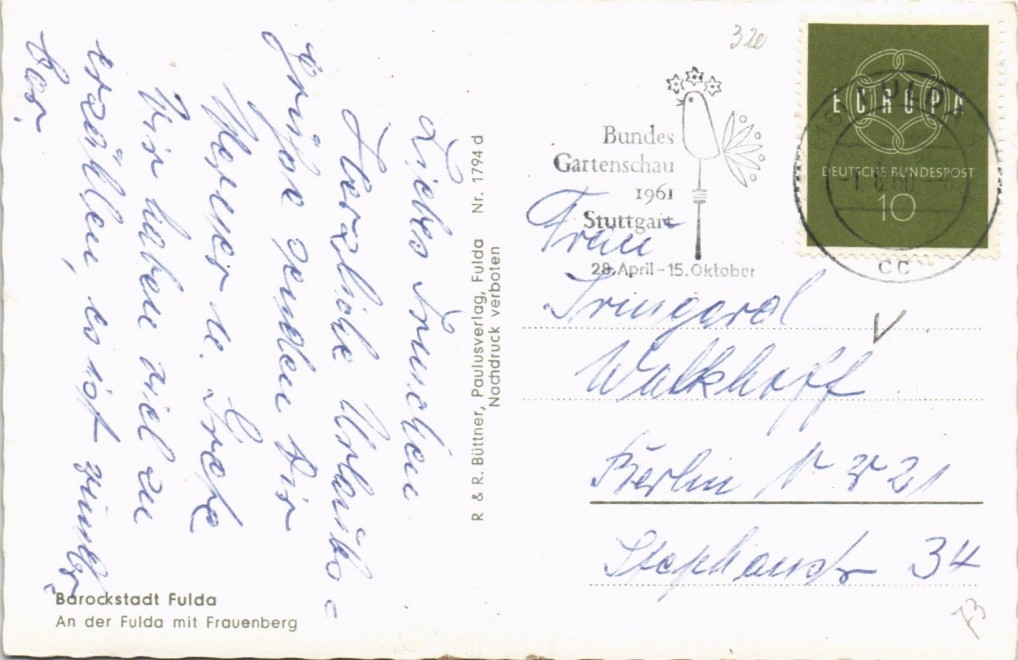 Liebes Irmchen
Herzliche Urlaubs
grüße senden Dir
Werner u. Grete
Wir haben viel zu
erzählen, es ist
bar.
R & R. Büttner, Paulusverlag, Fulda Nr. 1794 d
Nachdruck verboten
Barockstadt Fulda
An der Fulda mit Frauenberg
320
Bundes
Gartenschau
1961
Stuttgart
28. April - 15. Oktober
EUROPA
DEUTSCHE BUNDESPOST
10
cc
Frau
Irmgard
Walkhoff
Berlin N W 21
Stephanstr 34
73